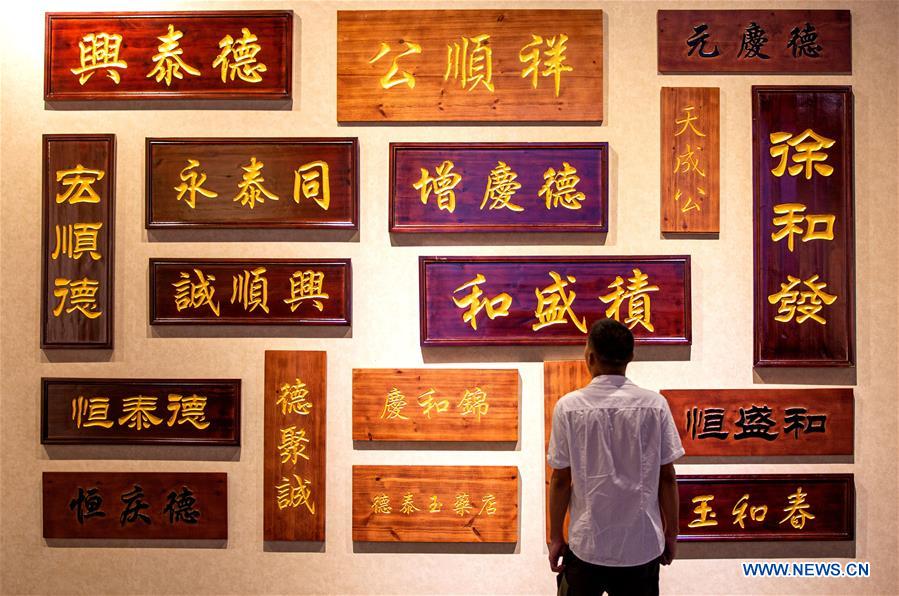 興泰德
公順祥
元慶德
天成公
徐和發
宏順德
永泰同
增慶德
誠順興
和盛積
恒泰德
德聚誠
慶和錦
恒盛和
恒庆德
德泰玉藥店
玉和春
WWW.NEWS.CN